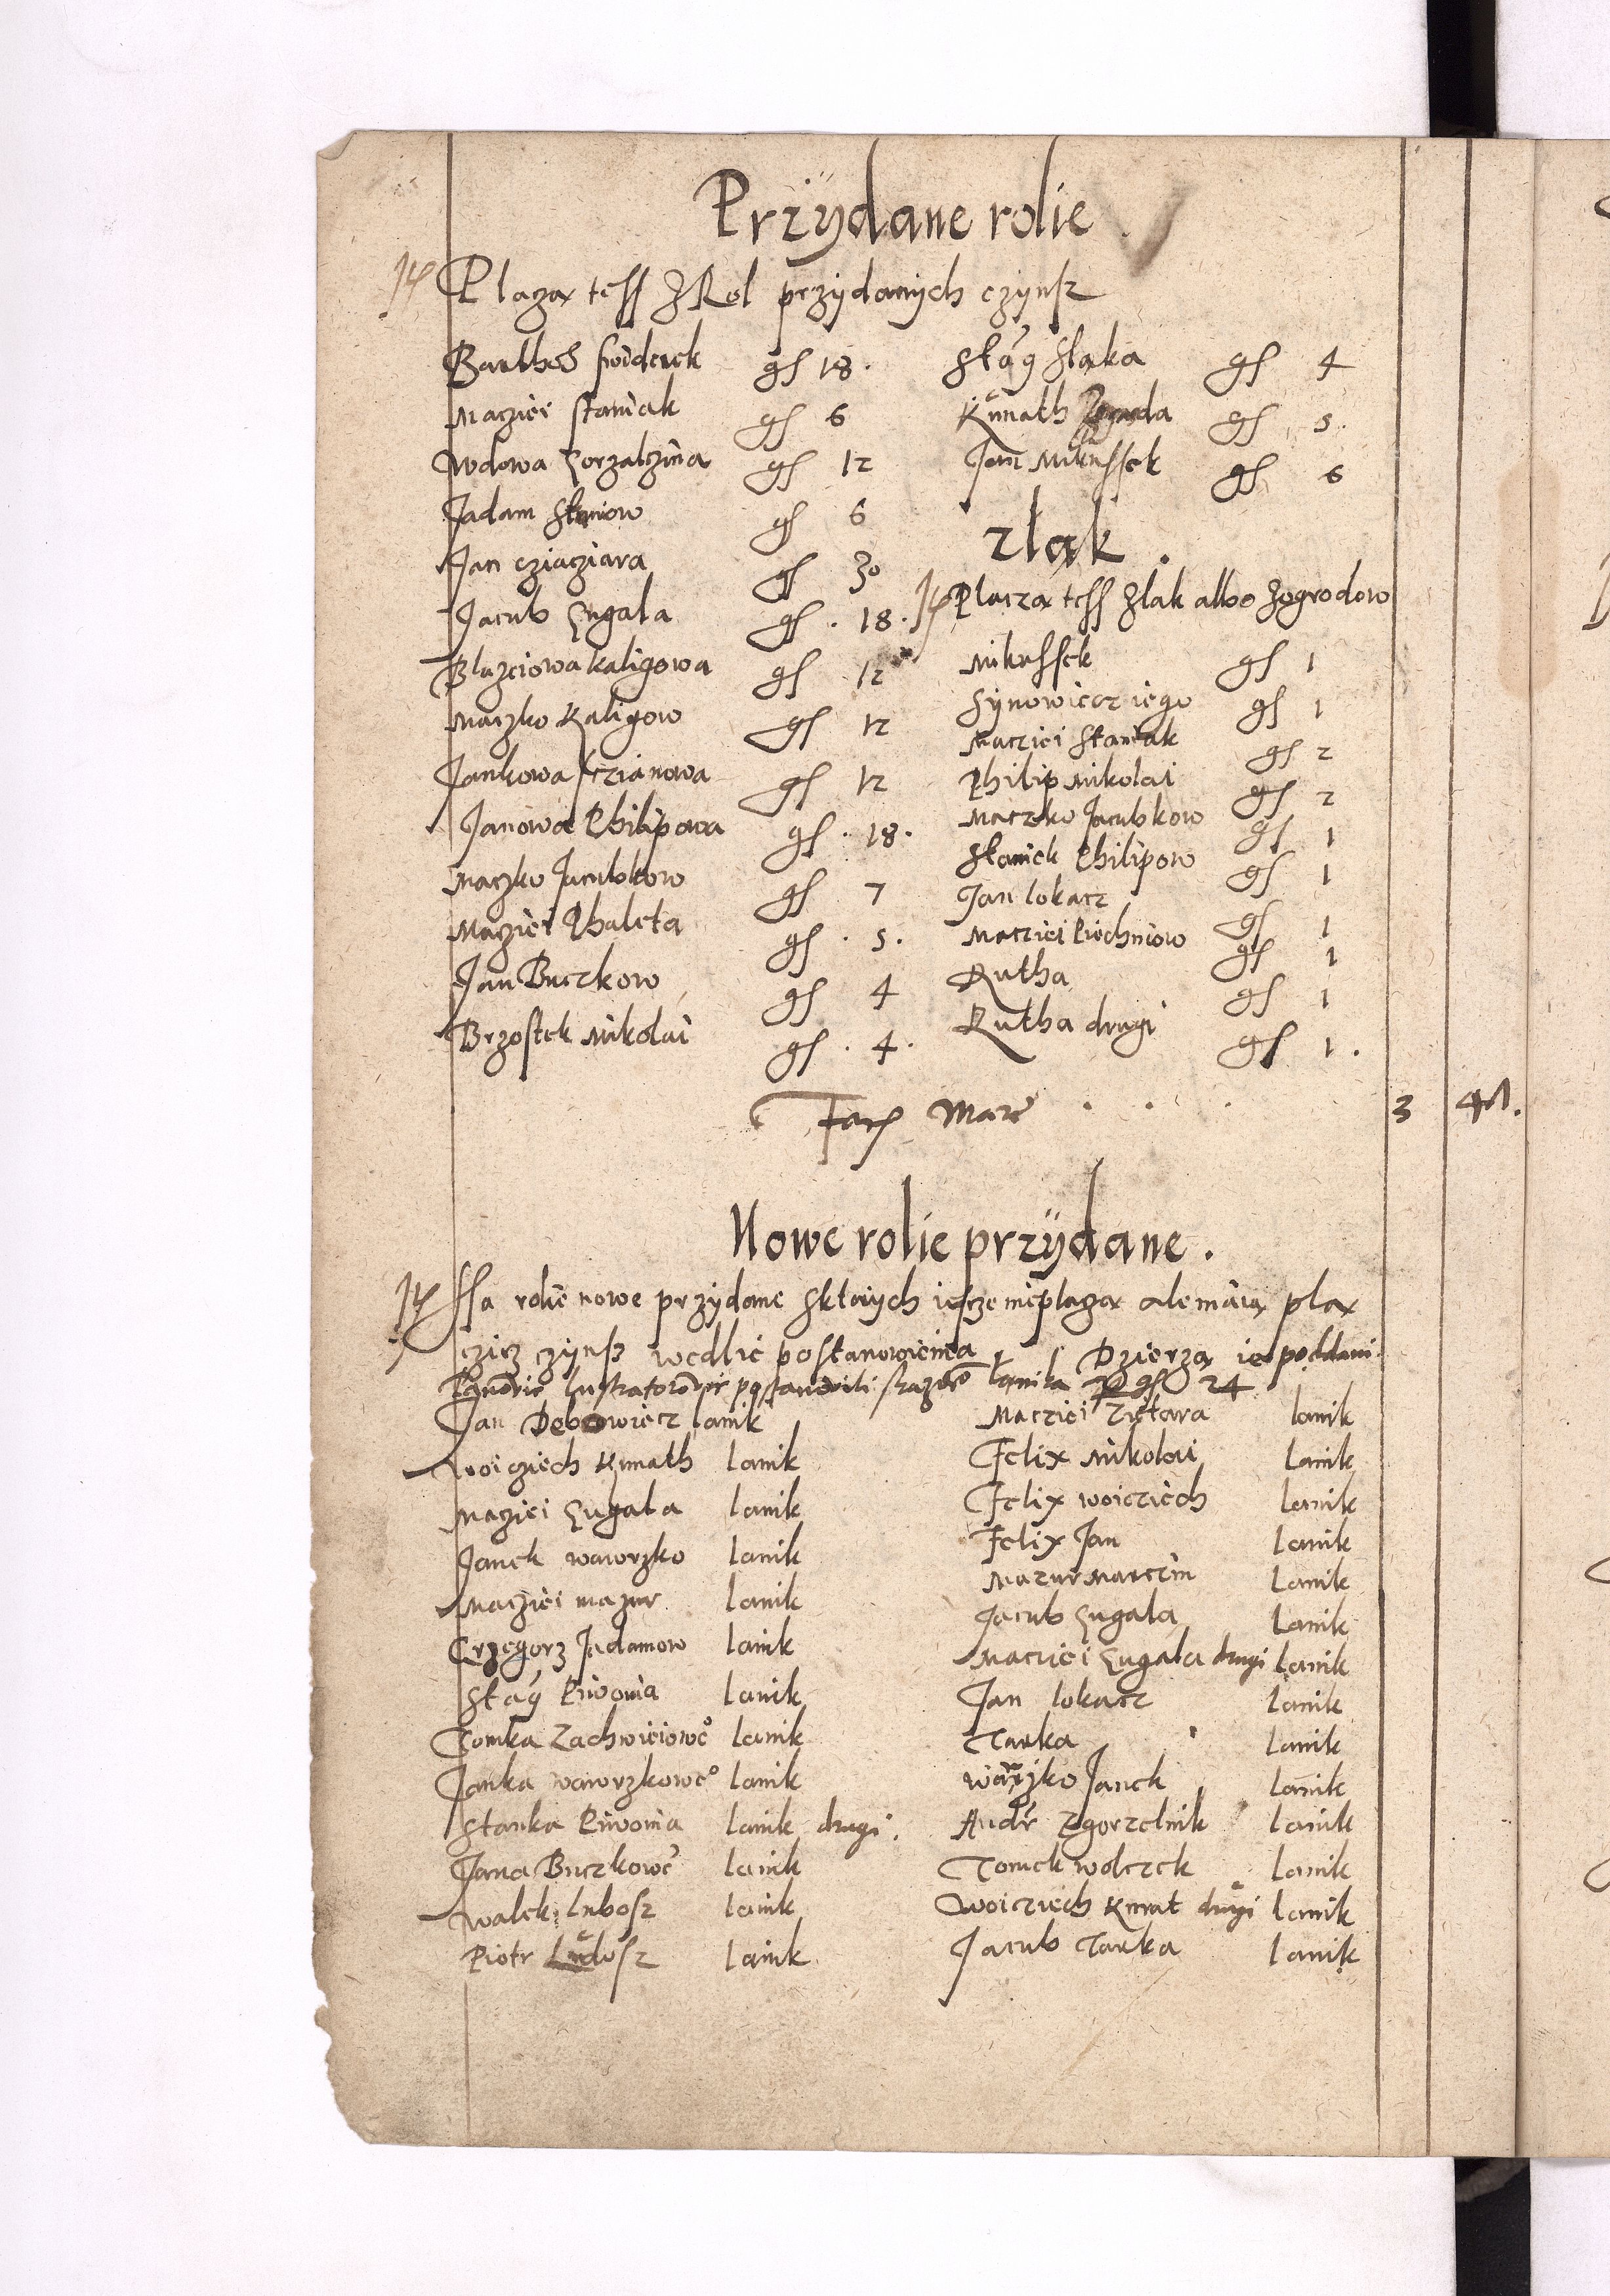 Przÿdane rolie
Placzą tesz z Rol przydanych czynsz
Barthos gs 18.
Macziei Staniak gs 6
Wdowa gs 12
Jadam Staniow gs 6
Jan cziacziara gs 30
Jacub Zugala gs . 18.
Blazeiowa kaligowa gs 12
Maczko Kaligow gs 12
Jankowa gs 12
Janowa Philipowa gs . 18.
Maczko Jacubkow gs 7
Macziei Phaleta gs . 5.
Jan Buczkow gs 4
Brzostek Mikolai gs . 4.
Slaka gs 4
Kumath gs 5.
Jan Mikussek gs 6
zlak.
Placza tesz zlak albo zogrodow
Mikussek gs 1
Synowiecz iego gs 1
Macziei Staniak gs 2
Philip Mikolai gs 2
Maczko Jacubkow gs 1
Staniek Philipow gs 1
Jan lokacz gs 1
Macziei Piechniow gs 1
Kutha gs 1
Kutha drugi gs 1.
Facz Marc . . . 3 41.
Nowe rolie przÿdane.
Ssa rolie nowe przydane sktorych iescze nieplaczą ale maią pla
czicz czynsz wedlie postanowienia Dzierzą ie poddani.
lanika gs 24
Jan Debowiecz lanik
Woicziech Kumath lanik
Macziei Zugala lanik
Janek waworzko lanik
Macziei mazur lanik
Grzegorz Jadamow lanik
Piwonia lanik
Tomka Zachwieiowe° lanik
Janka waworzkowe° lanik
Stanka Piwonia lanik drugi.
Jana Buczkowe lanik
Walek Lubosz lanik
Piotr lanik
Macziei Zietara lanik
Felix Mikolai lanik
Felix woicziech lanik
Felix Jan lanik
Mazur Marczin lanik
Jacub Zugala lanik
Macziei Zugala drugi lanik
Jan lokacz lanik
Tarka lanik
Janek lanik
Andr Zgorzelnik lanik
Tomek wolczek lanik
Woicziech Kumat drugi lanik
Jacub Tarka lanik